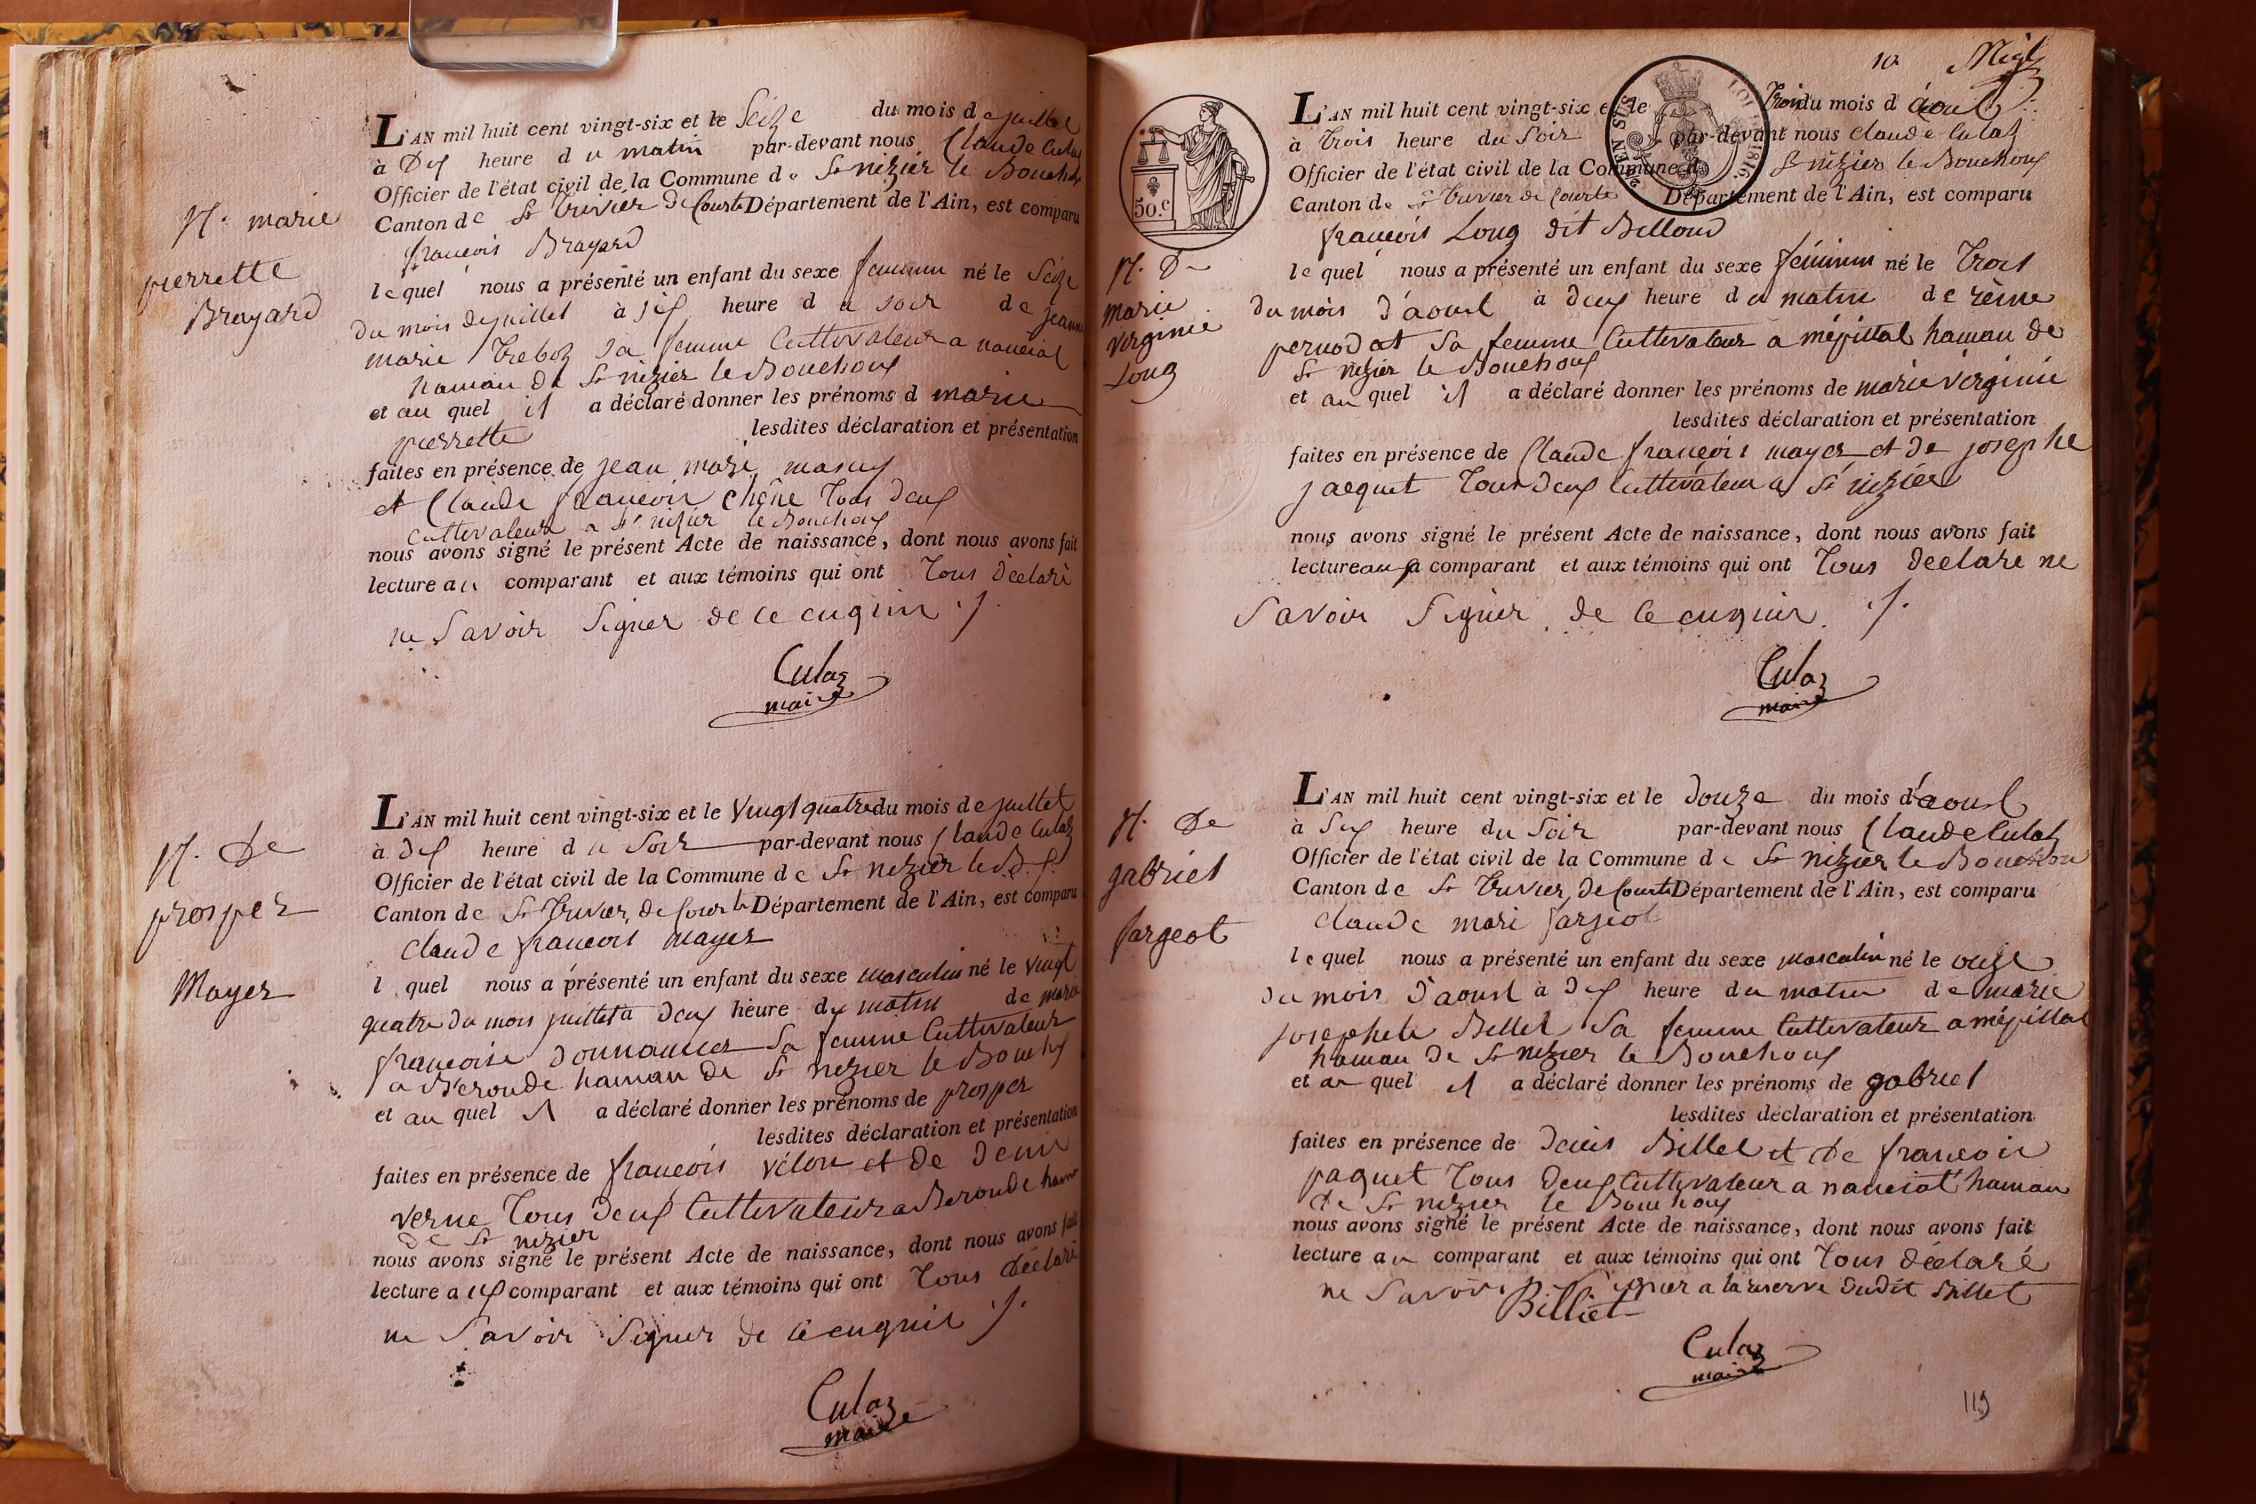 N. marie
pierrette
Brayard
L'AN mil huit cent vingt-six et le Seize du mois de juillet
à Dix heure du matin par-devant nous Claude Culaz
Officier de l'état civil de la Commune de St nizier le Bouchoux
Canton de St trivier de Courte Département de l'Ain, est comparu
françois Brayard
lequel nous a présenté un enfant du sexe feminin né le Seize
du mois de juillet à six heure du soir de jeanne
marie treboz sa femme Cultivateur a nanciat
hamau de St nizier le Bouchoux
et au quel il a déclaré donner les prénoms d marie
pierrette lesdites déclaration et présentation
faites en présence de jean mari
et Claude françois chêne tous deux
Cultivateur a St nizier le Bouchoux
nous avons signé le présent Acte de naissance, dont nous avons fait
lecture au comparant et aux témoins qui ont tous déclaré
ne Savoir Signer de ce enquir ./.
Culaz
maire
N. De
prosper
Mayer
L'AN mil huit cent vingt-six et le vingt quatre du mois de juillet
à dix heure du Soir par-devant nous Claude Culaz
Officier de l'état civil de la Commune de St nizier le B.
Canton de St trivier de Courte Département de l'Ain, est comparu
claude françois mayer
l quel nous a présenté un enfant du sexe masculin né le vingt
quatre du mois juillet a deux heure du matin de marie
françoise donnancier sa femme Cultivateur
a Béronde hamau de St nizier le Bouchoux
et au quel il a déclaré donner les prénoms de prosper
lesdites déclaration et présentation
faites en présence de françois vélon et de denis
verne tous deux Cultivateur a Beronde hamau
de St nizier
nous avons signé le présent Acte de naissance, dont nous avons fait
lecture a ux comparant et aux témoins qui ont tous déclaré
ne Savoir Signer de ce enquir ./.
Culaz
maire
10
50.c
EN SUS
LOI 1816.
N. De
marie
virginie
Long
L'AN mil huit cent vingt-six et le trois du mois d'aout
à trois heure du Soir par-devant nous claude Culaz
Officier de l'état civil de la Commune d St nizier le Bouchoux
Canton de St trivier de Courte Département de l'Ain, est comparu
françois Long dit Billoud
lequel nous a présenté un enfant du sexe féminin né le trois
du mois d'aoust à deux heure du matin de rène
pernodat sa femme Cultivateur a mépillat hamau de
St nizier le Bouchoux
et au quel il a déclaré donner les prénoms de marie virginie
lesdites déclaration et présentation
faites en présence de Claude françois mayer et de josephe
jacquet tous deux Cultivateur a St nizier
nous avons signé le présent Acte de naissance, dont nous avons fait
lecture au comparant et aux témoins qui ont tous declare ne
savoir signer de ce enquir ./.
Culaz
maire
N. De
gabriel
fargeot
L'AN mil huit cent vingt-six et le douze du mois d'aoust
à Six heure du Soir par-devant nous Claude Culaz
Officier de l'état civil de la Commune de St nizier le Bouchoux
Canton de St trivier de Courte Département de l'Ain, est comparu
claude mari fargeot
lequel nous a présenté un enfant du sexe masculin né le onze
du mois d'aoust à dix heure du matin de marie
josephete Billet sa femme Cultivateur a mépillat
hamau de St nizier le Bouchoux
et au quel il a déclaré donner les prénoms de gabriel
lesdites déclaration et présentation
faites en présence de denis Billet et de françois
paquet tous deux Cultivateur a nanciat hamau
de St nizier le Bouchoux
nous avons signé le présent Acte de naissance, dont nous avons fait
lecture au comparant et aux témoins qui ont tous déclaré
ne Savoir Signer a la reserve dudit billet
Billiet
Culaz
maire
119